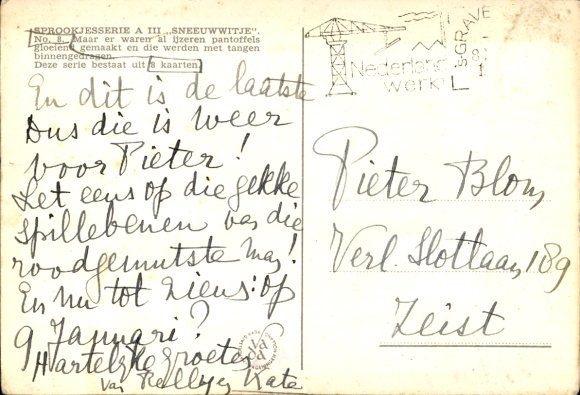 SPROOKJESSERIE A III „SNEEUWWITJE".
No. 8. Maar er waren al ijzeren pantoffels
gloeiend gemaakt en die werden met tangen
binnengedragen.
Deze serie bestaat uit 8 kaarten.
En dit is de laatste
Dus die is weer
voor Pieter!
Let eens op die gekke
spillebenen van die
roodgemutste man!
En nu tot ziens: op
9 Januari?
Hartelijke groeten
van Kata
'S GRAVE
Nederland
werkt
Pieter Blom,
Verl. Slotlaan 189
Zeist